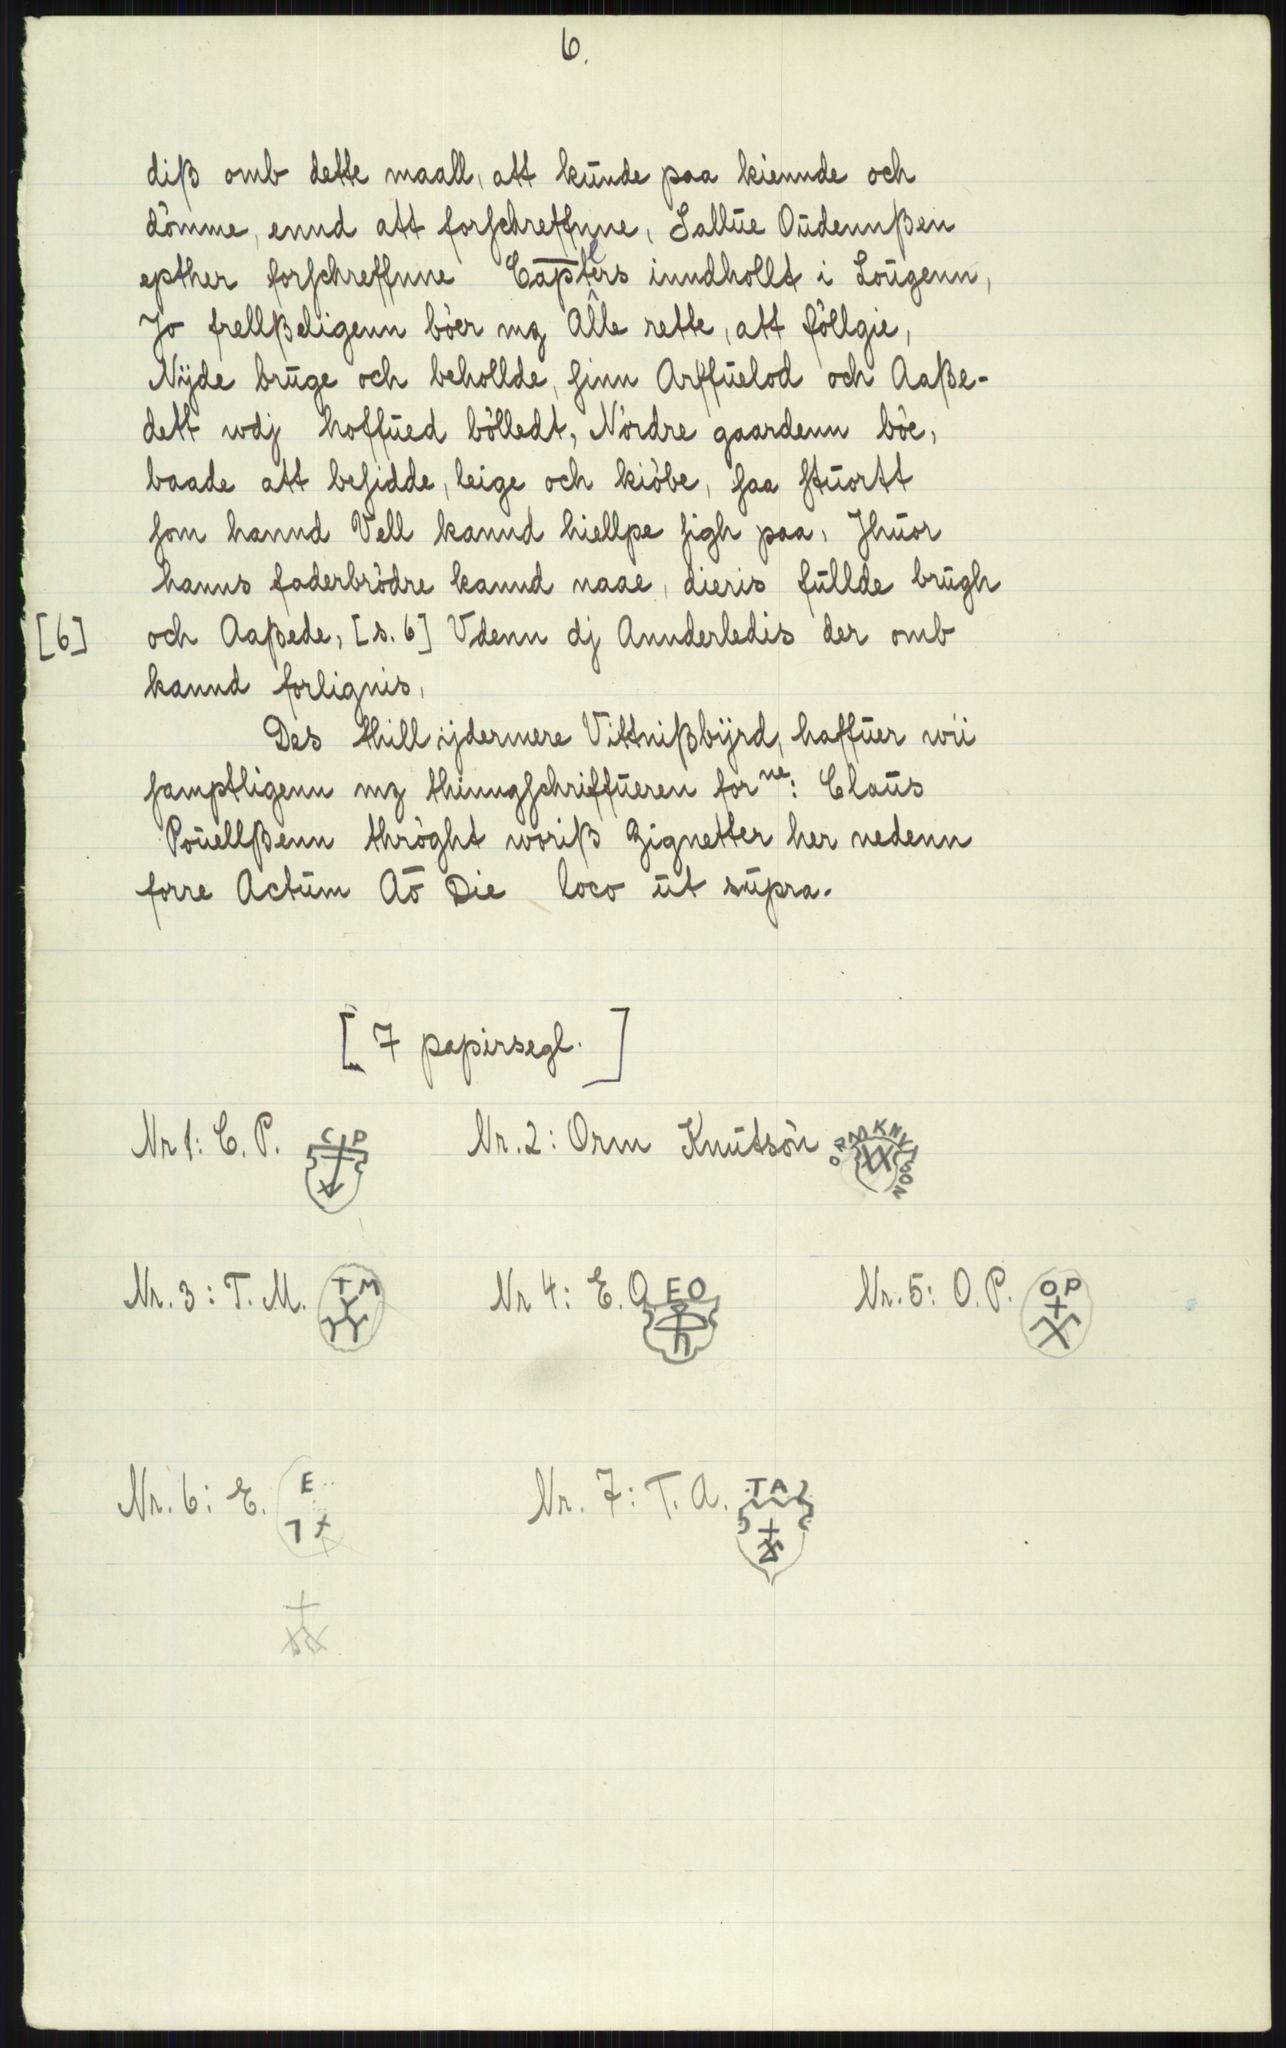 6.
diß omb dette maall, att kunde paa kiennde och
dömme, ennd att forſchreffnne, Sallue Oudennßen
epther forſchreffnne Capters inndhollt i Lougenn,
Jo frellßeligenn böer mz Alle rette, att föllgie,
Nÿde bruge och behollde, ſinn Arffuelod och Aaße-
dett wdj hoffued bölledt, Nördre gaardenn böe,
baade att beſidde, leige och kiöbe, ſaa ſtuortt
ſom hannd Vell kannd hiellpe ſigh paa, Jhuor
hanns faderbrödre kannd naae, dieris fullde brugh
[6] och Aaßede, [s. 6] Vdenn dj Annderledis der omb
kannd forlignis,
Des thill ÿdermere Vittnißbÿrd, haffuer wii
ſamptligenn mz thinngſchriffueren for ne: Claus
Pouellßenn thröght woriß Zignetter her nedenn
forre Actum Aō Die loco ut supra.
[7 papirsegl.]
Nr 1: C. P. C P Nr. 2: Orm Knutsön ORM KNVTSON
Nr. 3: T. M. T M Nr 4: E. O E O Nr. 5: O. P. O P
Nr. 6: E. E Nr. 7: T. A. T A